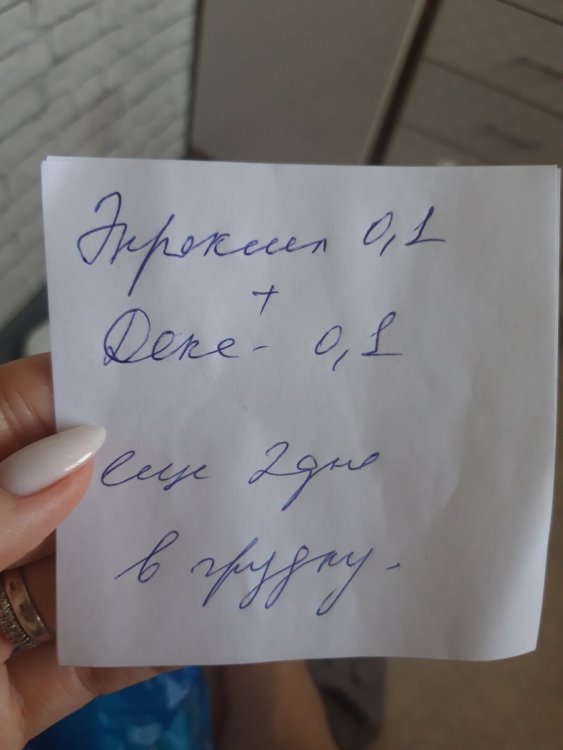 Энроксил 0,1
+
Декс - 0,1
еще 2 дня
в грудку.